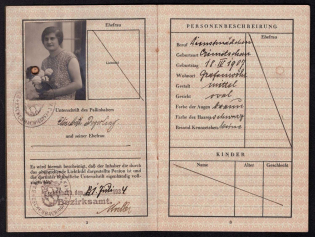 Ehefrau
Lichtbild
Unterschrift des Paßinhabers
und seiner Ehefrau
Es wird hiermit bescheinigt, daß der Inhaber die durch
das obenstehende Lichtbild dargestellte Person ist und
die darunter befindliche Unterschrift eigenhändig voll-
zogen hat.
21. Juli
Bezirksamt.
PERSONENBESCHREIBUNG
Ehefrau
Beruf
Geburtsort
Geburtstag 18. III 1907
Wohnort Grafenwöhr
Gestalt mittel
Gesicht oval
Farbe der Augen braun
Farbe des Haares schwarz
Besond. Kennzeichen keine
KINDER
Name Alter Geschlecht